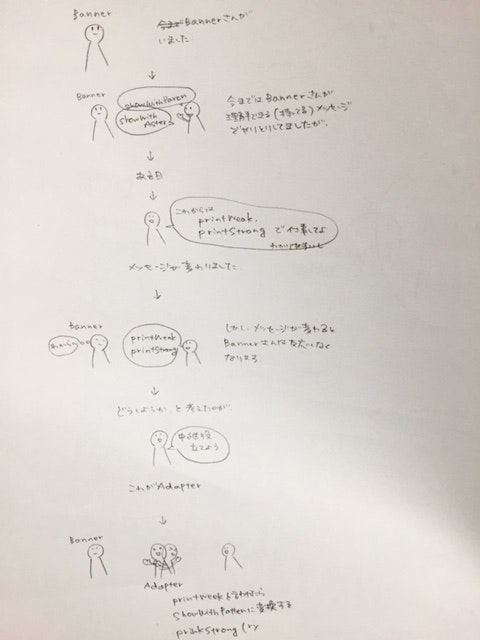 Banner
今まで Bannerさんが
いました
↓
Banner
showWithParen
showWith
Aster
今まではBannerさんが
理解できる(持ってる)メッセージ
でやりとりしてましたが、
↓
ある日
↓
これからは
printWeak,
printStrong で付業してよ
↓
メッセージが変わりました
↓
Banner
わからん
printWeak
printStrong
しかし、メッセージが変わると
Bannerさんは
なります
↓
どうしようか と考えたのが、
中継役
立てよう
これがAdapter
↓
Banner
Adapter
printWeekを
showWithPattenに変換する
prinkStrong (ry